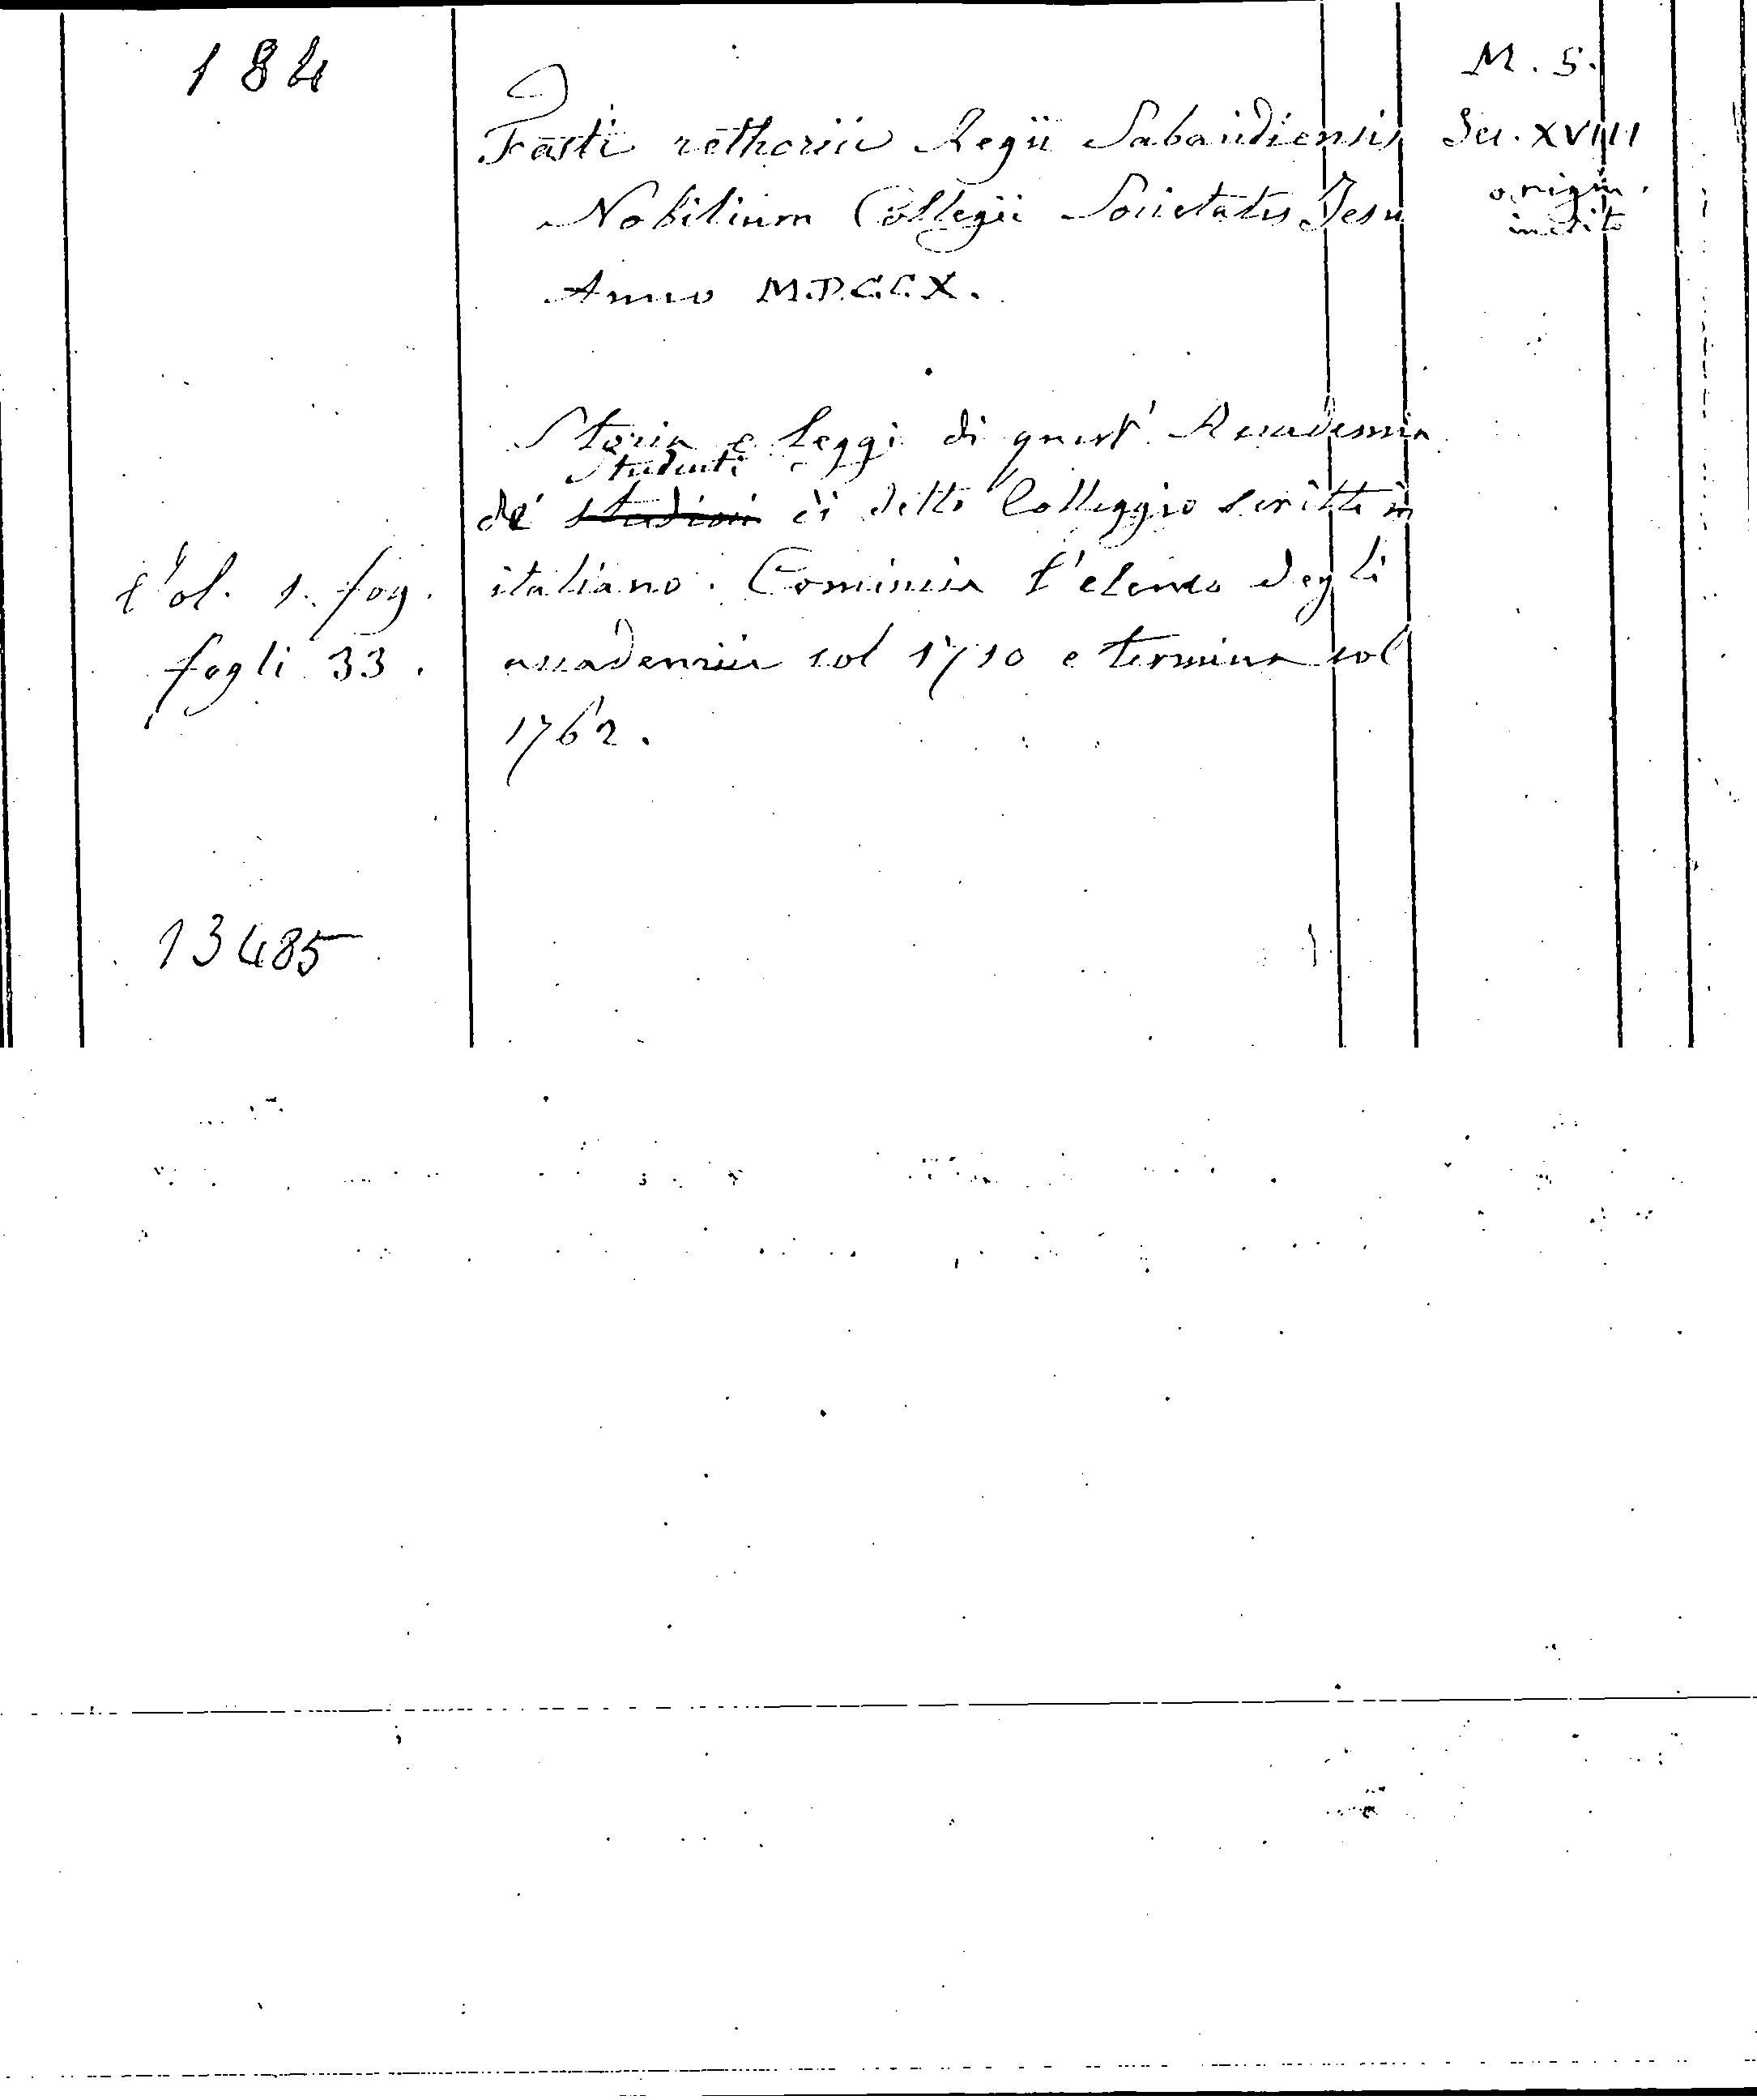 184
Fasti rethorici Regii Sabaudiensis
Nobilium Collegii Societatis Jesu
Anno M.D.C.C.X.
M. S.
Sec. XVIII
origin.
inedito
Storia e leggi di quest' Accademia
Studenti
de' studiosi di detto Colleggio scritte in
italiano. Comincia l'elenco degli
accademici col 1710 e termina col
1762.
Vol. 1. fog.
fogli 33.
13485